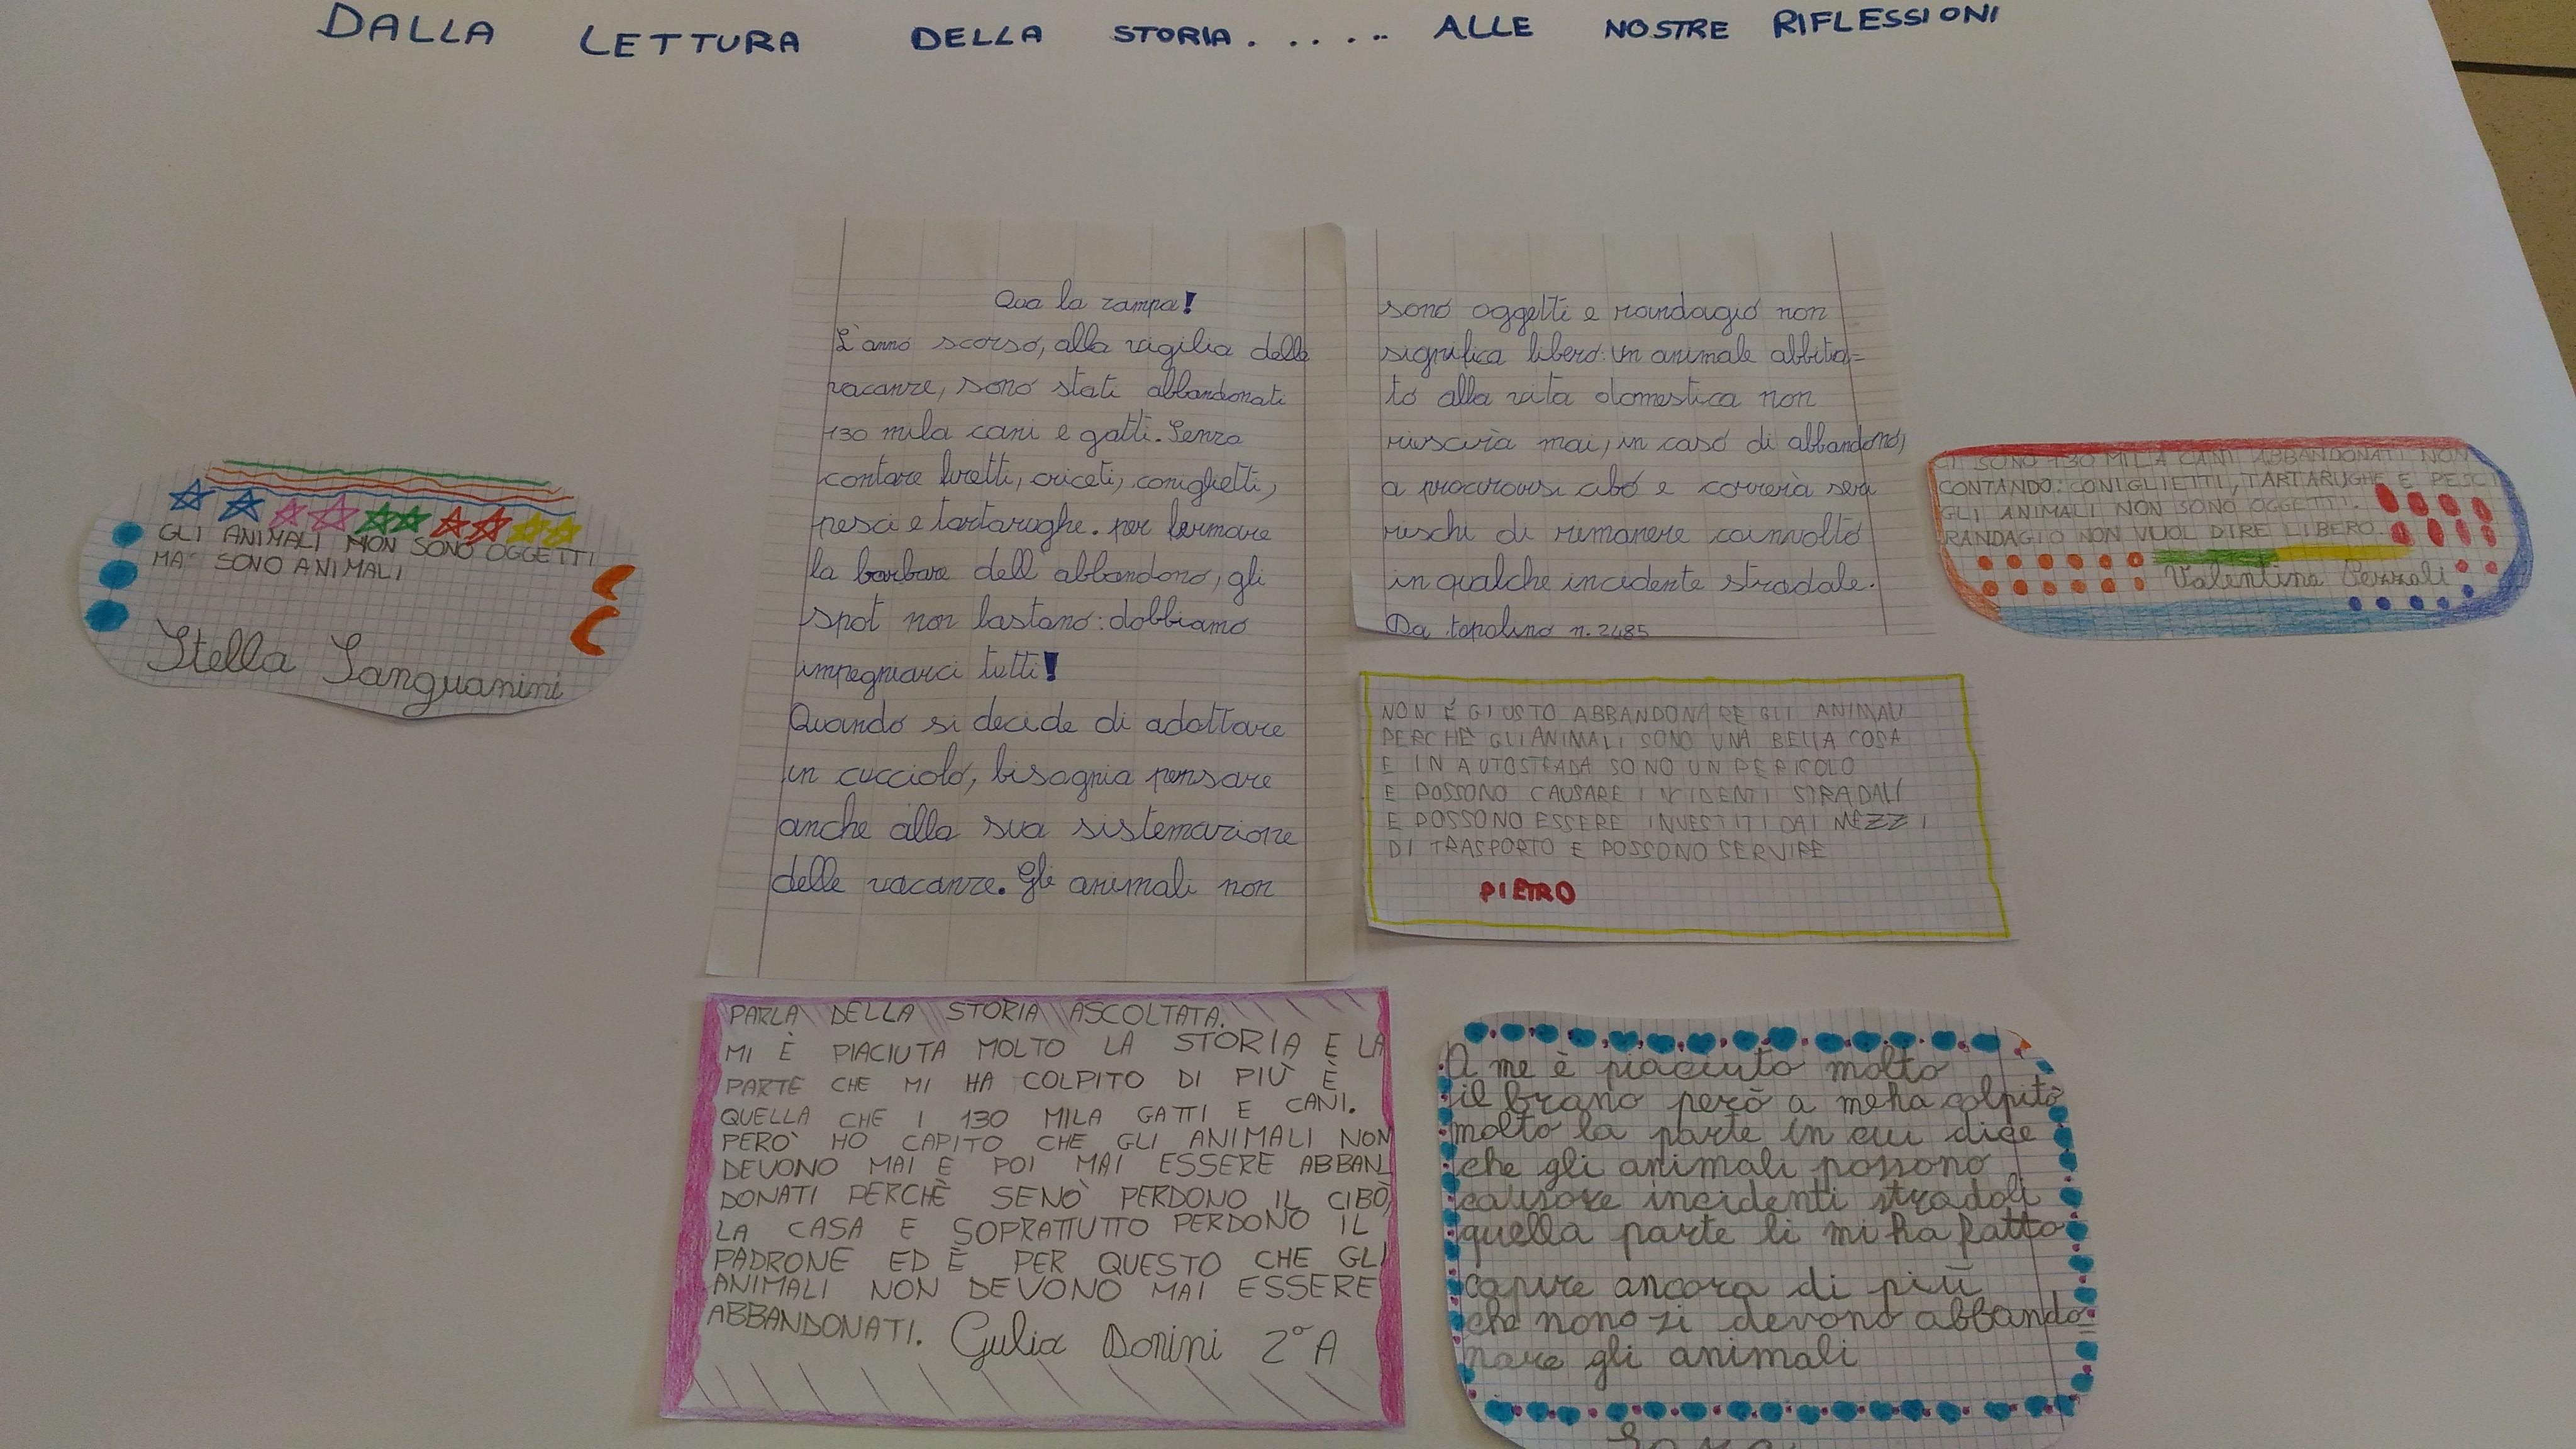 DALLA LETTURA DELLA STORIA...... ALLE NOSTRE RIFLESSIONI
GLI ANIMALI NON SONO OGGETTI
MA SONO ANIMALI
Stella Sanguanini
Qua la zampa!
L'anno scorso, alla vigilia delle
vacanze, sono stati abbandonati
130 mila cani e gatti. Senza
contare furetti, criceti, coniglietti,
pesci e tartarughe. per fermare
la barbare dell abbandono, gli
spot non bastano: dobbiamo
impegniarci tutti!
Quando si decide di adottare
un cucciolo, bisognia pensare
anche alla sua sistemazione
delle vacanze. Gli animali non
sono oggetti e randagio non
significa libero: un animale abbitua=
to alla vita domestica non
riuscirà mai, in caso di abbandono,
a procurarsi cibo e correrà seri
rischi di rimanere coinvolto
in qualche incidente stradale.
Da topolino n. 2485
CI SONO 130 MILA CANI ABBANDONATI NON
CONTANDO: CONIGLIETTI, TARTARUGHE E PESCI
GLI ANIMALI NON SONO OGGETTI.
RANDAGIO NON VUOL DIRE LIBERO.
Valentina
NON È GIUSTO ABBANDONARE GLI ANIMALI
PERCHÈ GLI ANIMALI SONO UNA BELLA COSA
E IN AUTOSTRADA SONO UN PERICOLO
E POSSONO CAUSARE INCIDENTI STRADALI
E POSSONO ESSERE INVESTITI DAI MEZZI
DI TRASPORTO E POSSONO SERVIRE
PIETRO
PARLA DELLA STORIA ASCOLTATA.
MI È PIACIUTA MOLTO LA STORIA E LA
PARTE CHE MI HA COLPITO DI PIÙ È
QUELLA CHE I 130 MILA GATTI E CANI.
PERÒ HO CAPITO CHE GLI ANIMALI NON
DEVONO MAI E POI MAI ESSERE ABBAN
DONATI PERCHÈ SENÒ PERDONO IL CIBO,
LA CASA E SOPRATTUTTO PERDONO IL
PADRONE ED È PER QUESTO CHE GLI
ANIMALI NON DEVONO MAI ESSERE
ABBANDONATI. Gulia Donini 2°A
A me è piaciuto molto
il brano però a me ha colpito
molto la parte in cui dice
che gli animali possono
causare incidenti stradali
quella parte li mi ha fatto
capire ancora di più
che nono si devono abbando=
nare gli animali